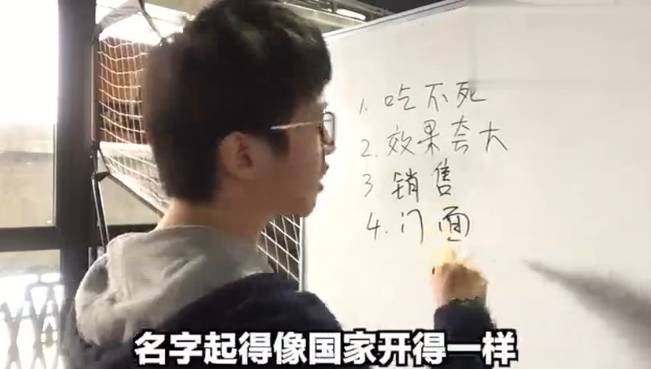 1. 吃不死
2. 效果夸大
3 销售
4. 门面
名字起得像国家开得一样